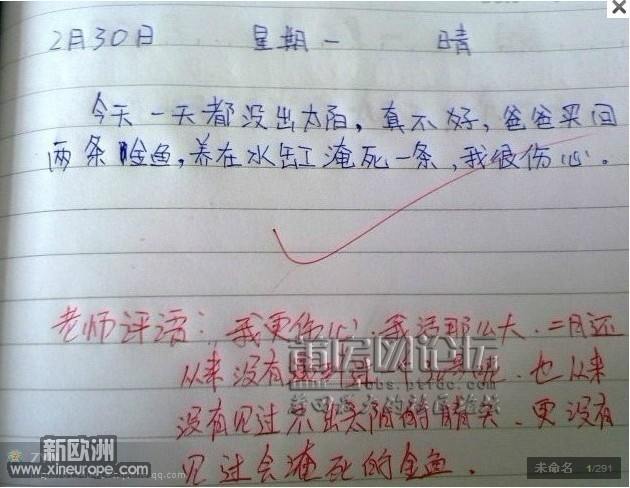 2月30日 星期一 晴
今天一天都没出太阳，真不好，爸爸买回
两条金鱼，养在水缸淹死一条，我很伤心。
老师评语：我更伤心，我活那么大，二月还
从来没有，也从来
没有见过不出太阳的晴天，更没有
见过会淹死的金鱼．
新欧洲
www.xineurope.com
未命名 1/291